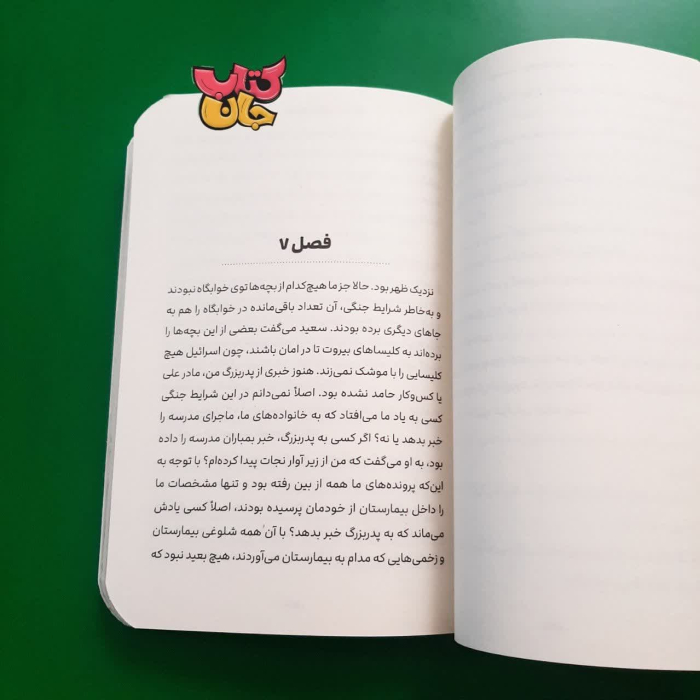 کتاب
جان
فصل ۷
نزدیک ظهر بود. حالا جز ما هیچ‌کدام از بچه‌ها توی خوابگاه نبودند
و به‌خاطر شرایط جنگی، آن تعداد باقی‌مانده در خوابگاه را هم به
جاهای دیگری برده بودند. سعید می‌گفت بعضی از این بچه‌ها را
برده‌اند به کلیساهای بیروت تا در امان باشند، چون اسرائیل هیچ
کلیسایی را با موشک نمی‌زند. هنوز خبری از پدربزرگ من، مادر علی
یا کس‌وکار حامد نشده بود. اصلاً نمی‌دانم در این شرایط جنگی
کسی به یاد ما می‌افتاد که به خانواده‌های ما، ماجرای مدرسه را
خبر بدهد یا نه؟ اگر کسی به پدربزرگ، خبر بمباران مدرسه را داده
بود، به او می‌گفت که من از زیر آوار نجات پیدا کرده‌ام؟ با توجه به
این‌که پرونده‌های ما همه از بین رفته بود و تنها مشخصات ما
را داخل بیمارستان از خودمان پرسیده بودند، اصلاً کسی یادش
می‌ماند که به پدربزرگ خبر بدهد؟ با آن همه شلوغی بیمارستان
و زخمی‌هایی که مدام به بیمارستان می‌آوردند، هیچ بعید نبود که